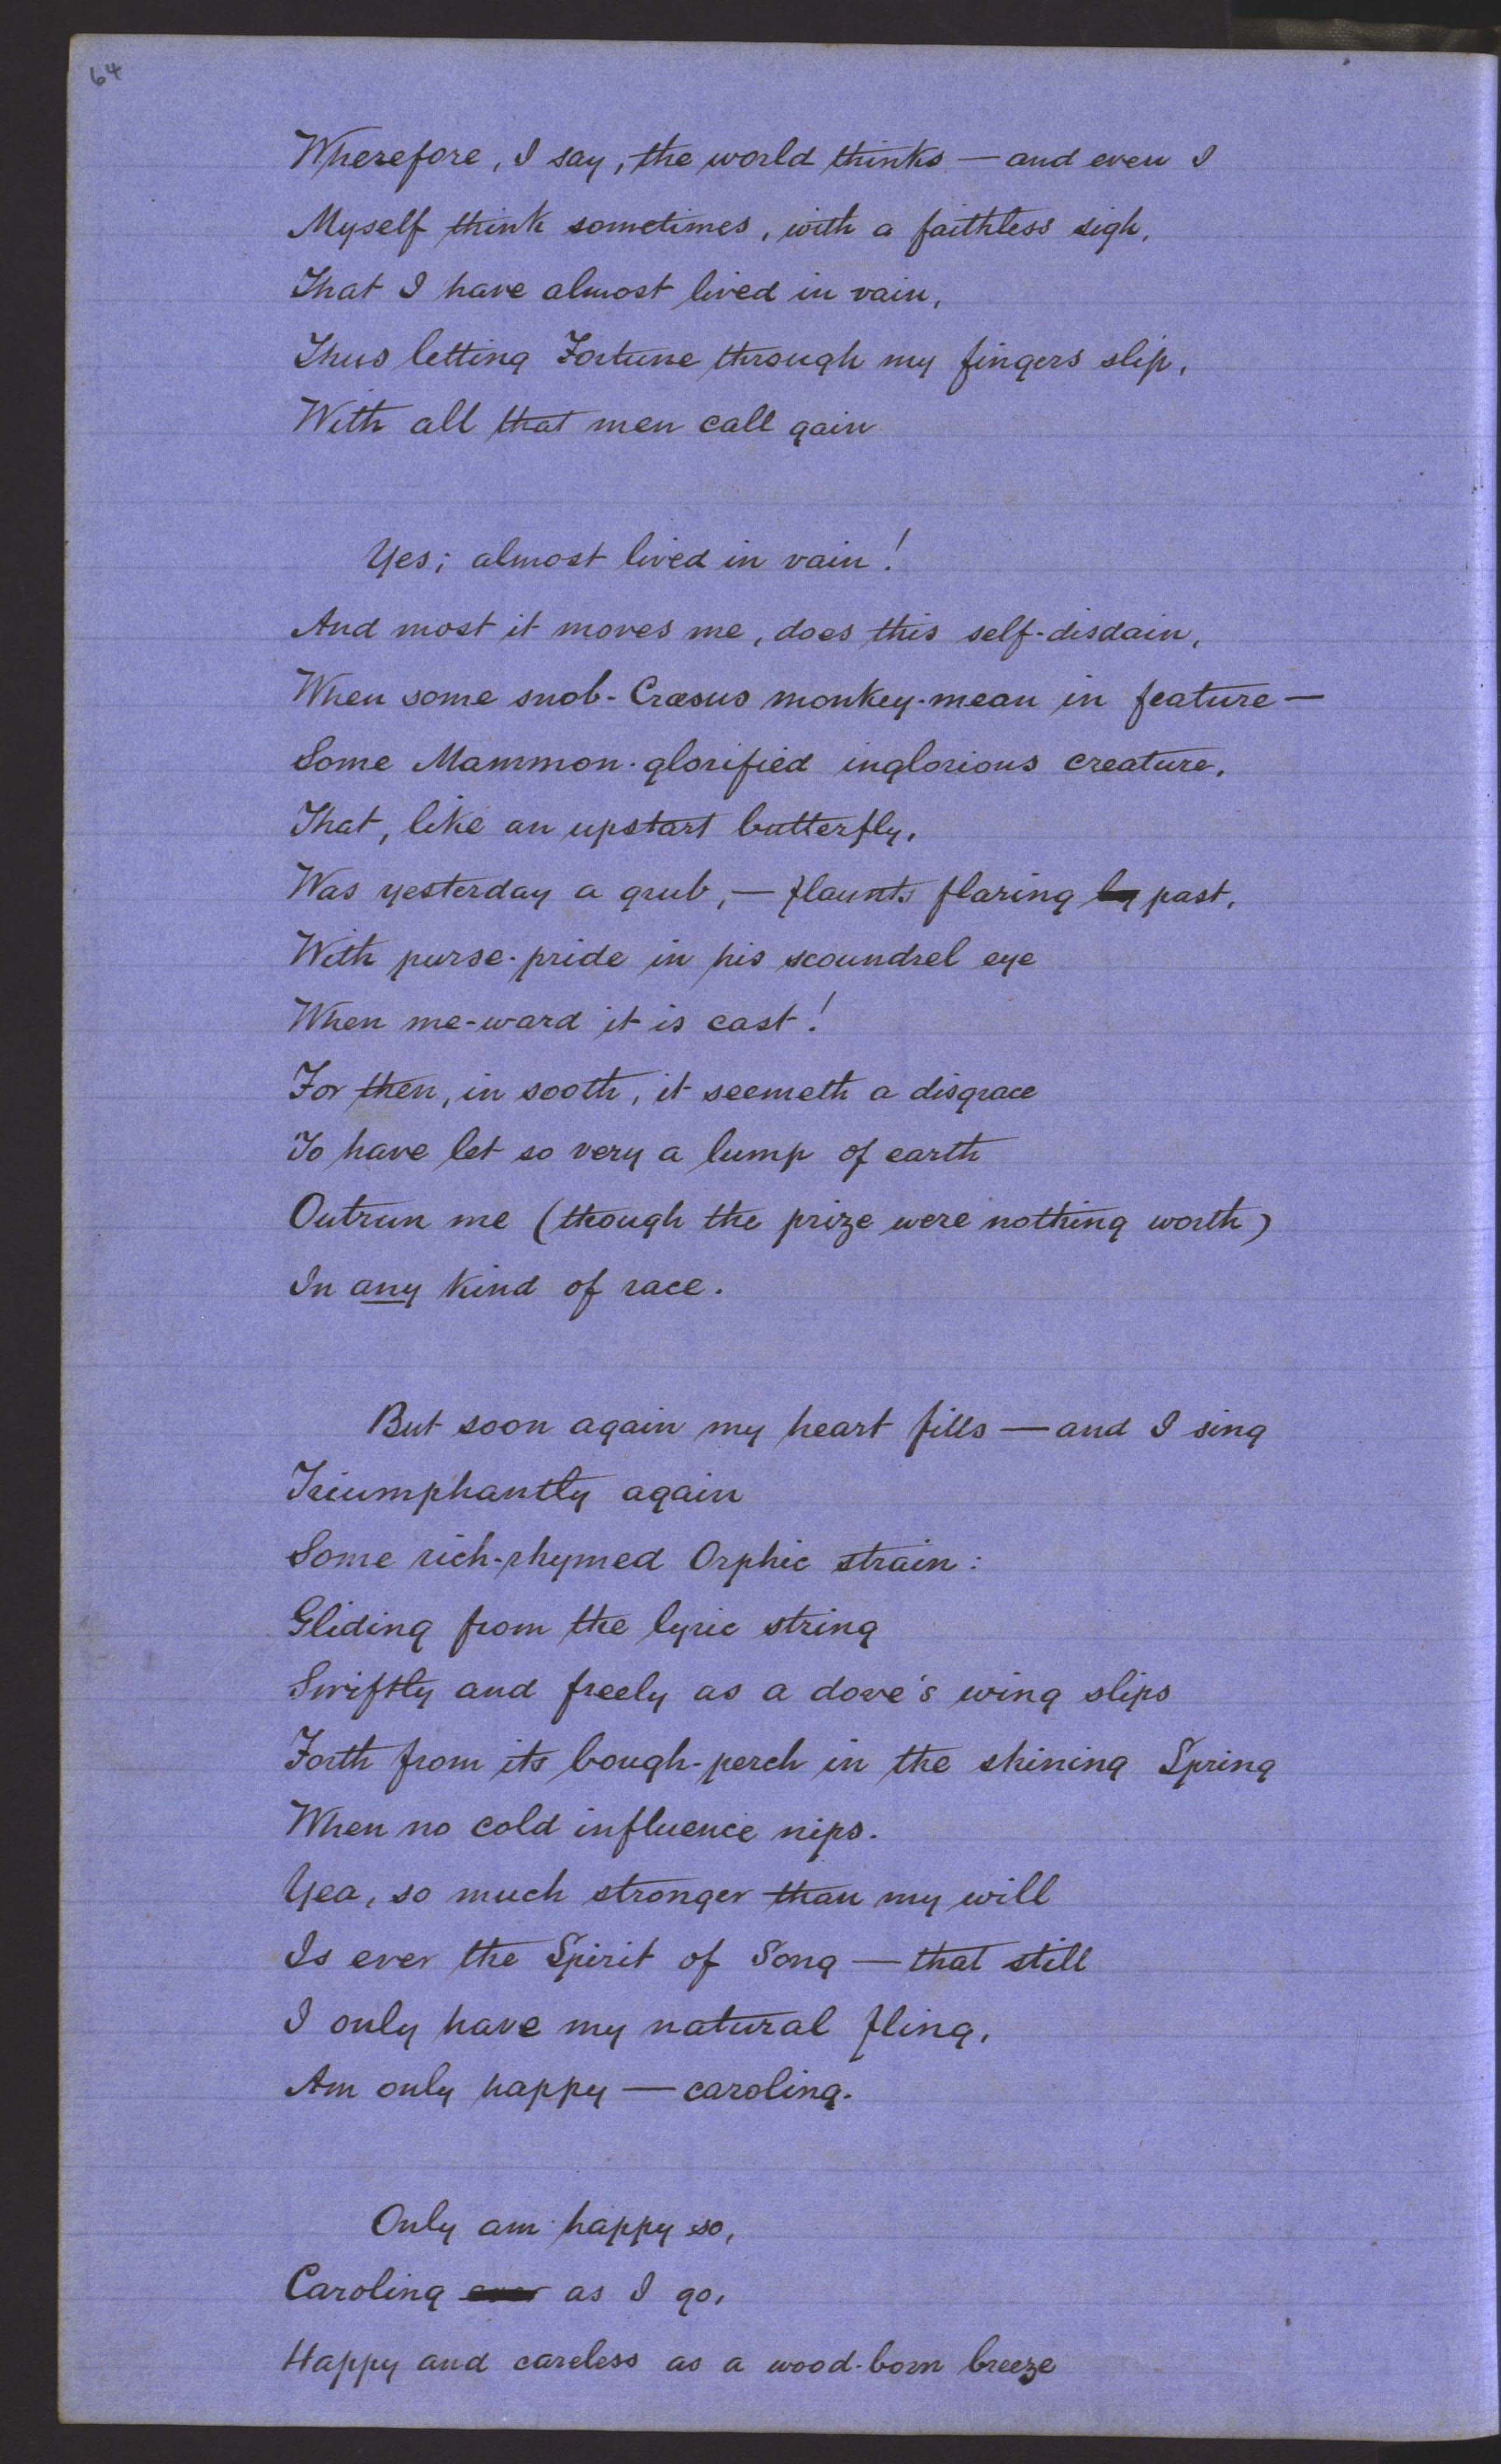 64
Wherefore, I say, the world thinks — and even I
Myself think sometimes, with a faithless sigh,
That I have almost lived in vain,
Thus letting Fortune through my fingers slip,
With all that men call gain
Yes; almost lived in vain!
And most it moves me, does this self-disdain,
When some snob-Crœsus monkey-mean in feature —
Some Mammon-glorified inglorious creature,
That, like an upstart butterfly,
Was yesterday a grub, — flaunts flaring by past,
With purse-pride in his scoundrel eye
When me-ward it is cast!
For then, in sooth, it seemeth a disgrace
To have let so very a lump of earth
Outrun me (though the prize were nothing worth)
In any kind of race.
But soon again my heart fills — and I sing
Triumphantly again
Some rich-rhymed Orphic strain:
Gliding from the lyric string
Swiftly and freely as a dove's wing slips
Forth from its bough-perch in the shining Spring
When no cold influence nips.
Yea, so much stronger than my will
Is ever the Spirit of Song — that still
I only have my natural fling,
Am only happy — caroling.
Only am happy so,
Caroling ever as I go,
Happy and careless as a wood-born breeze